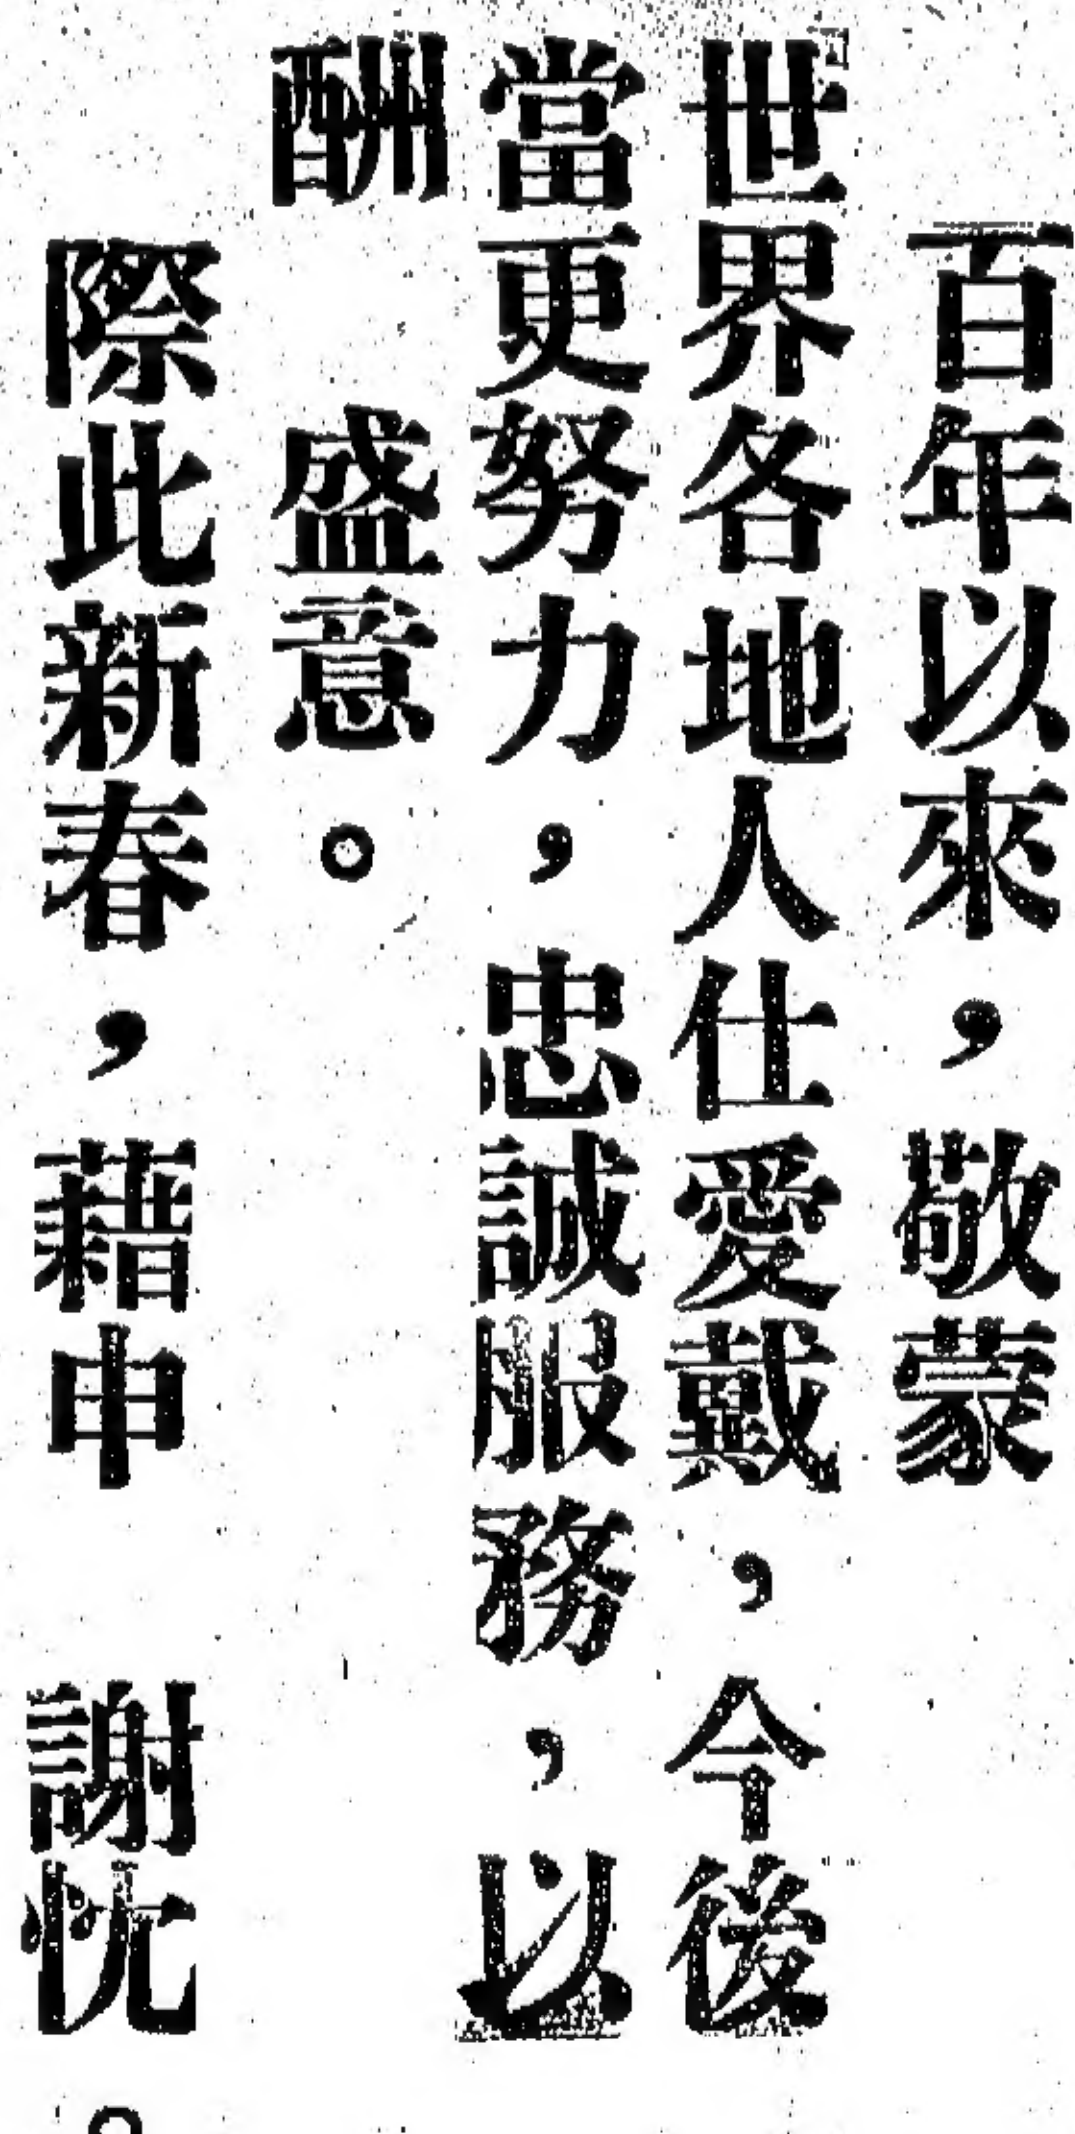 百年以來，敬蒙
世界各地人仕愛戴，今後
當更努力，忠誠服務，以
酬　盛意。
際此新春，藉申　謝忱。